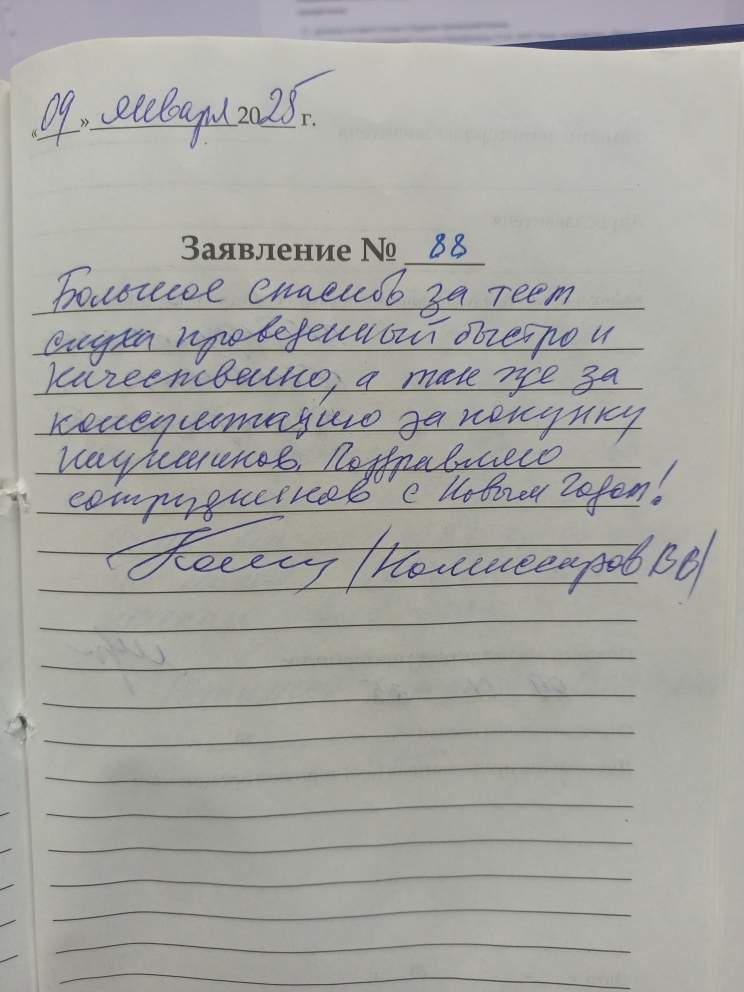 «09» января 2025 г.
Заявление № 88
Большое спасибо за тест
слуха проведенный быстро и
качественно, а так же за
консультацию за покупку
наушников. Поздравляю
сотрудников с Новым Годом!
/Комиссаров ВВ/